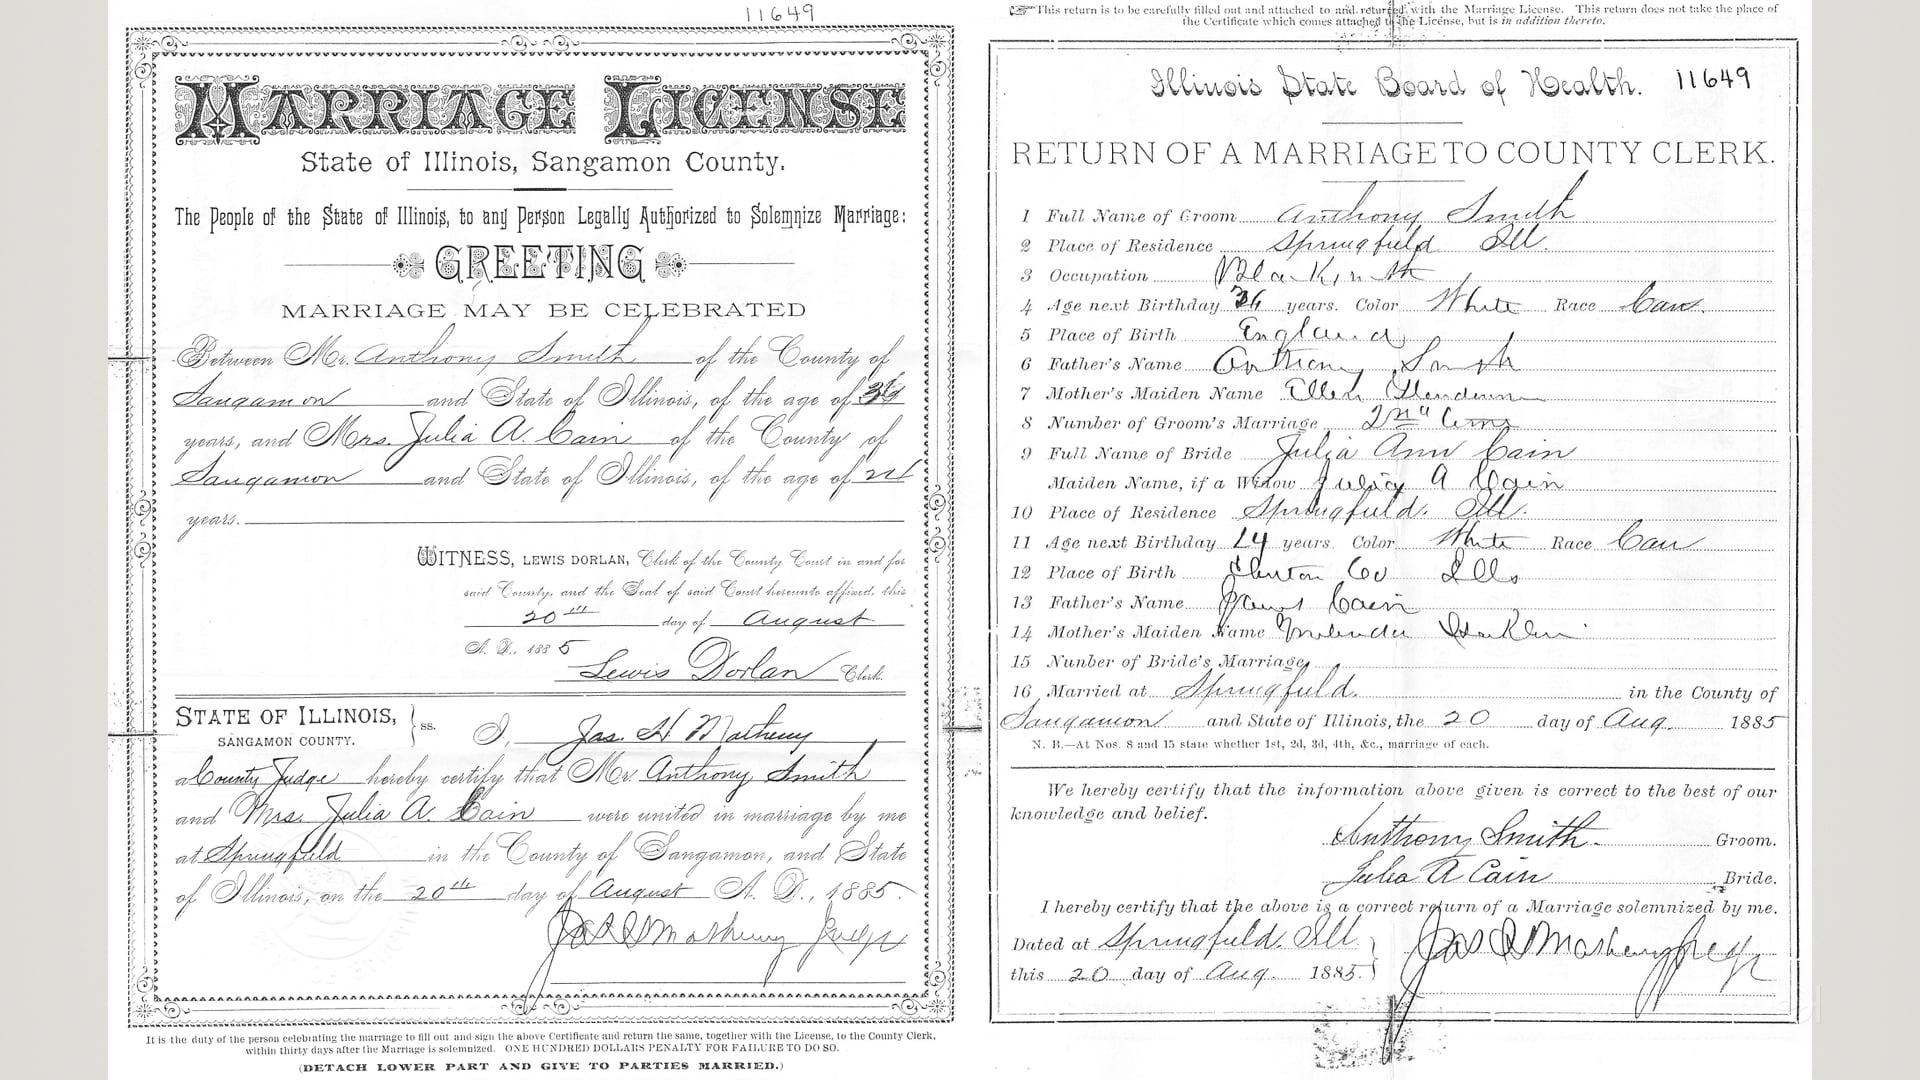 11649
MARRIAGE LICENSE
State of Illinois, Sangamon County.
The People of the State of Illinois, to any Person Legally Authorized to Solemnize Marriage:
GREETING
MARRIAGE MAY BE CELEBRATED
Between Mr. Anthony Smith of the County of
Sangamon and State of Illinois, of the age of 36
years, and Mrs. Julia A. Cain of the County of
Sangamon and State of Illinois, of the age of 24
years.
WITNESS, LEWIS DORLAN, Clerk of the County Court in and for
said County, and the Seal of said Court hereunto affixed, this
20th day of August
A. D., 1885
Lewis Dorlan Clerk.
STATE OF ILLINOIS, SANGAMON COUNTY. } ss. I, Jas. H Matheny
a County Judge hereby certify that Mr. Anthony Smith
and Mrs. Julia A. Cain were united in marriage by me
at Springfield in the County of Sangamon, and State
of Illinois, on the 20th day of August A. D., 1885.
Jas H Matheny Judge
It is the duty of the person celebrating the marriage to fill out and sign the above Certificate and return the same, together with the License, to the County Clerk,
within thirty days after the Marriage is solemnized. ONE HUNDRED DOLLARS PENALTY FOR FAILURE TO DO SO.
(DETACH LOWER PART AND GIVE TO PARTIES MARRIED.)
☞ This return is to be carefully filled out and attached to and returned with the Marriage License. This return does not take the place of
the Certificate which comes attached to the License, but is in addition thereto.
Illinois State Board of Health. 11649
RETURN OF A MARRIAGE TO COUNTY CLERK.
1 Full Name of Groom Anthony Smith
2 Place of Residence Springfield Ill.
3 Occupation
4 Age next Birthday 36 years. Color White Race Caus.
5 Place of Birth England
6 Father's Name Anthony Smith
7 Mother's Maiden Name Ellen Henderson
8 Number of Groom's Marriage 2nd
9 Full Name of Bride Julia Ann Cain
Maiden Name, if a Widow Julia A Cain
10 Place of Residence Springfield. Ill.
11 Age next Birthday 24 years. Color White Race Cau
12 Place of Birth Clinton Co Ills
13 Father's Name James Cain
14 Mother's Maiden Name
15 Nunber of Bride's Marriage
16 Married at Springfield. in the County of
Sangamon and State of Illinois, the 20 day of Aug. 1885
N. B.—At Nos. 8 and 15 state whether 1st, 2d, 3d, 4th, &c., marriage of each.
We hereby certify that the information above given is correct to the best of our
knowledge and belief.
Anthony Smith. Groom.
Julia A Cain Bride.
I hereby certify that the above is a correct return of a Marriage solemnized by me.
Dated at Springfield. Ill
this 20 day of Aug. 1885.
Jas H Matheny Judge